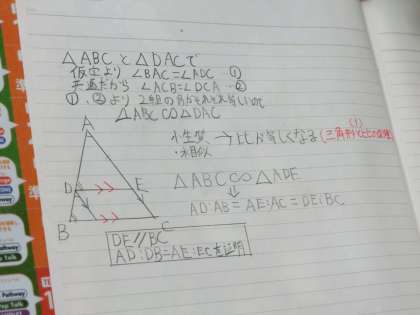 △ABCと△DACで
仮定より ∠BAC=∠ADC ①
共通だから ∠ACB=∠DCA ②
①、②より 2組の角がそれぞれ等しいので
△ABC∽△DAC
A
小性質 → 比が等しくなる
・相似
△ABC∽△ADE
⇓
AD:AB=AE:AC=DE:BC
D
E
B
C
DE//BC
AD:DB=AE:ECを証明
Pathway